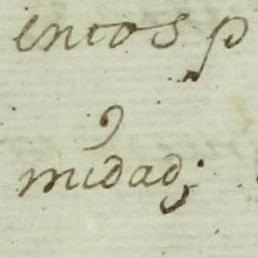 entos p
midad;